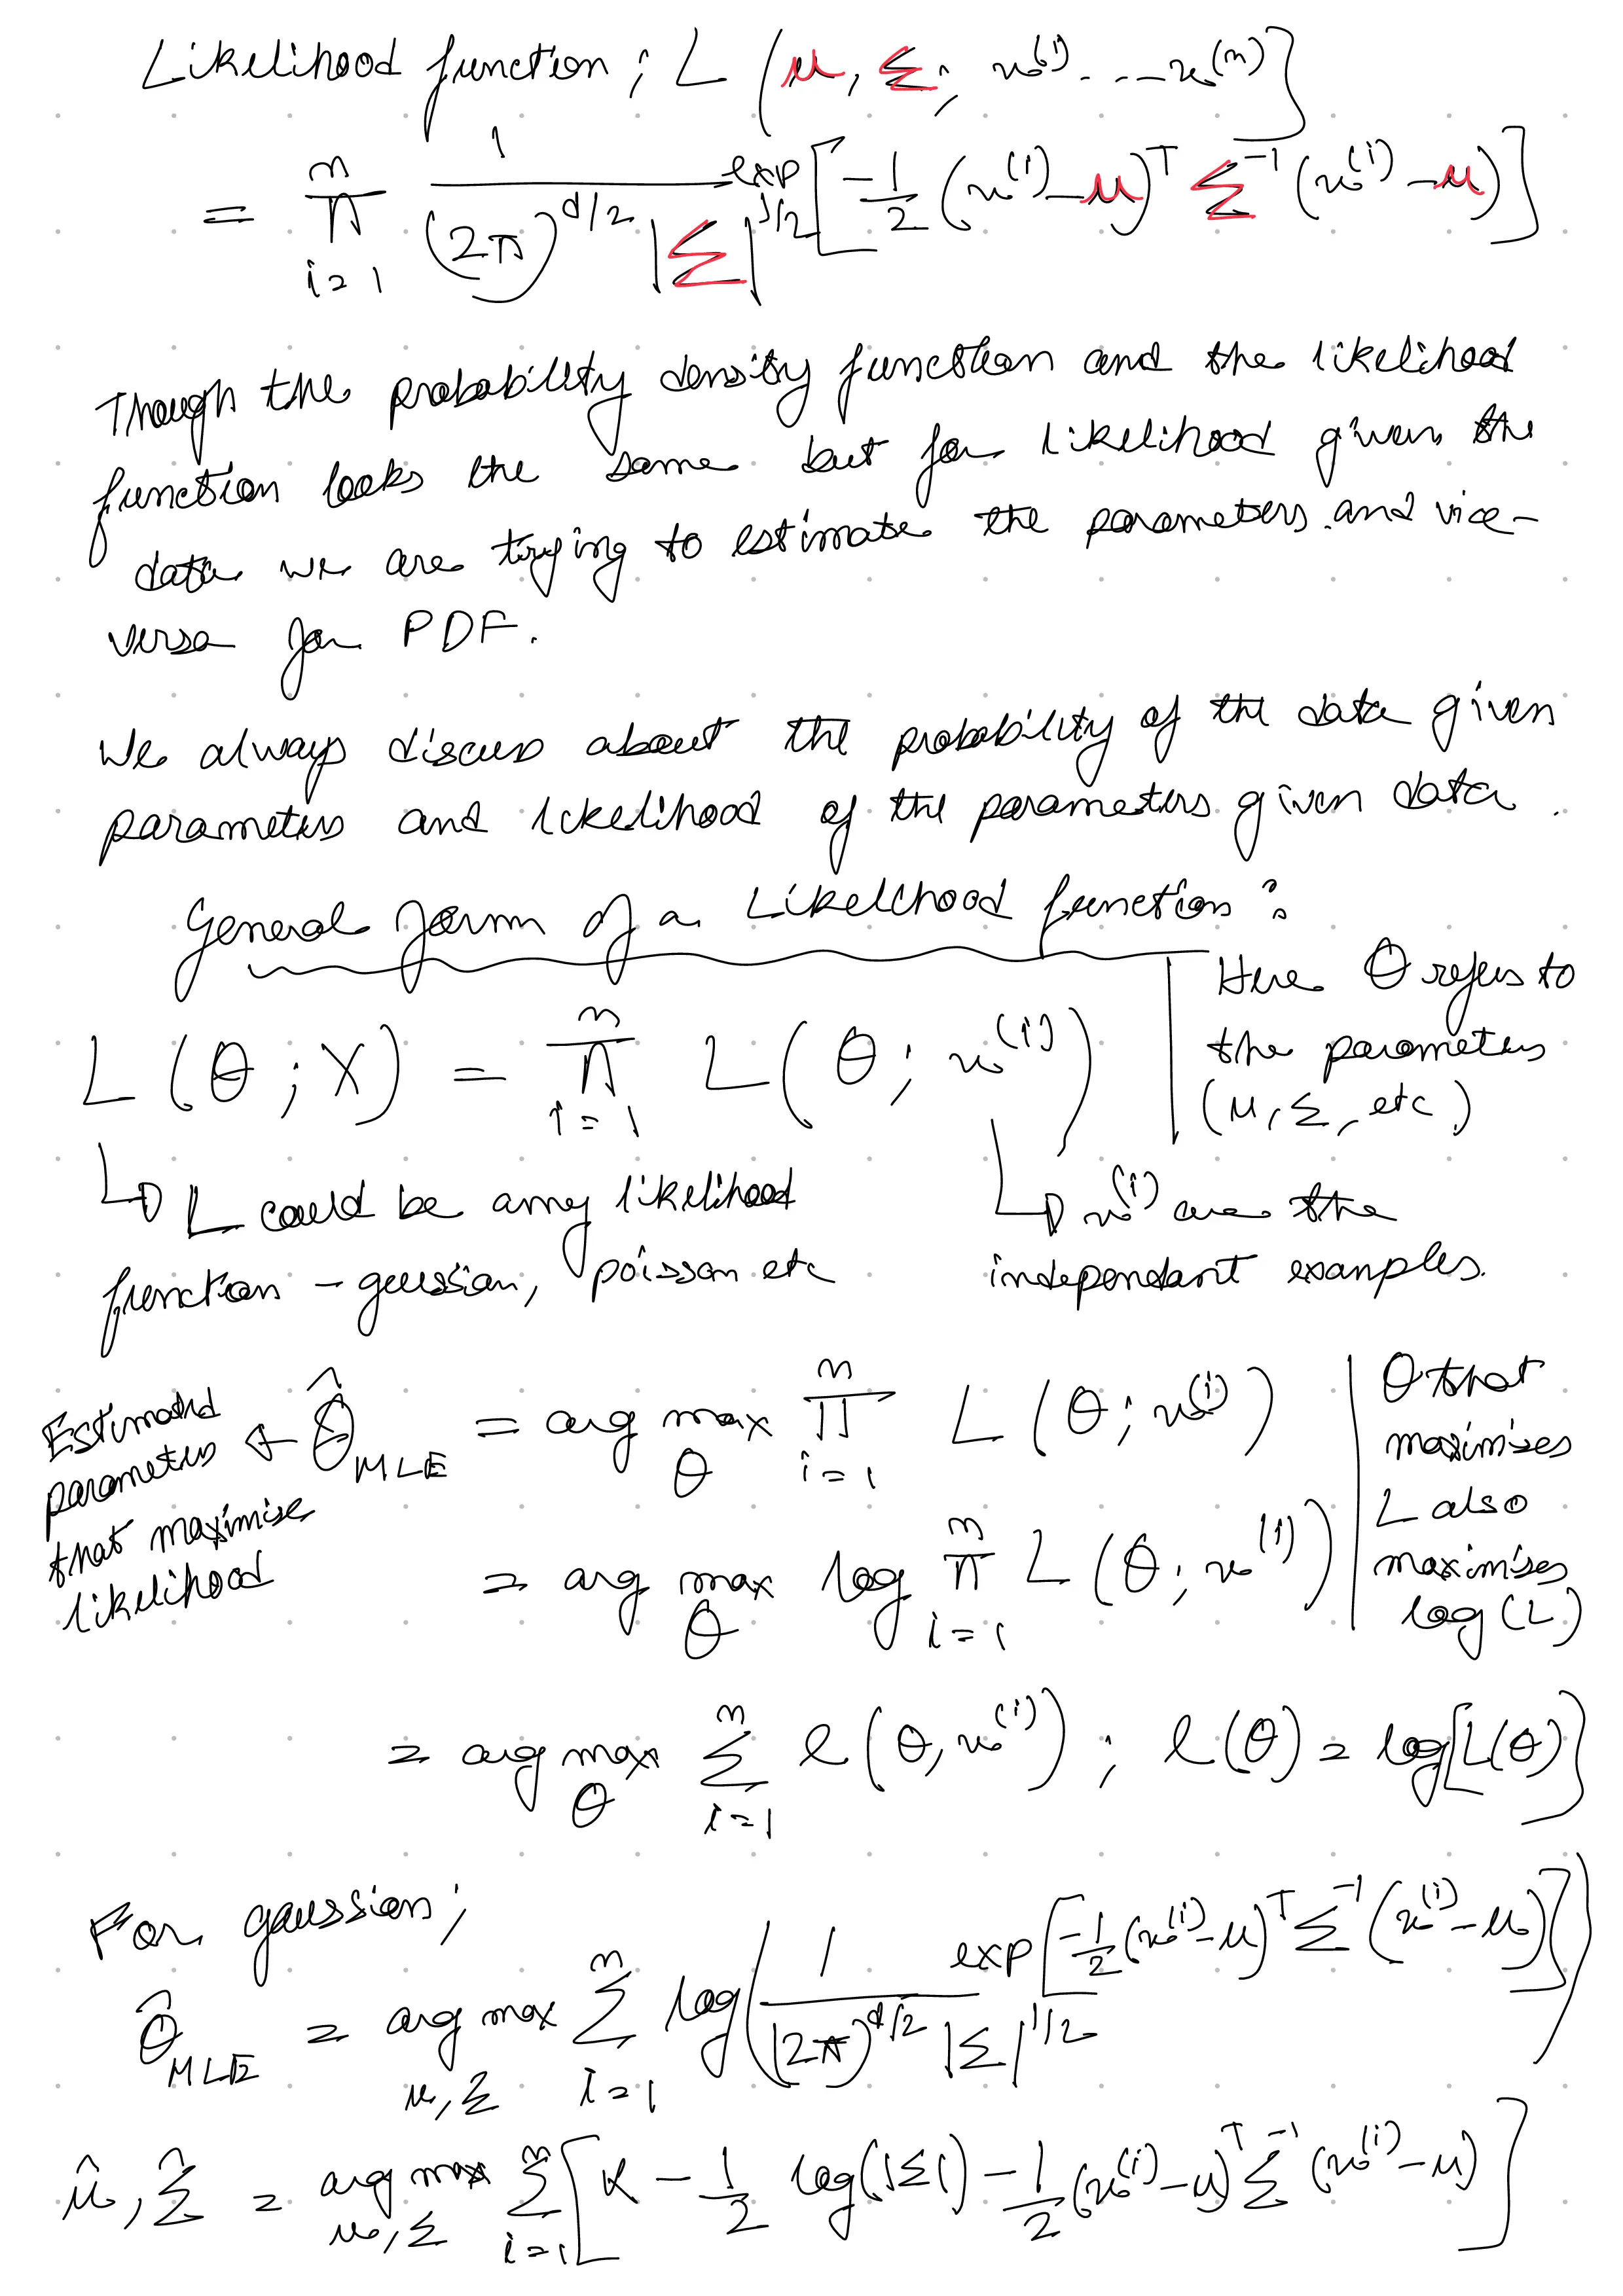 Likelihood function; L (μ, Σ; x⁽¹⁾ - - - x⁽ⁿ⁾]
= ∏ᵢ₌₁ⁿ 1/((2π)^(d/2) |Σ|^(1/2)) exp[-1/2 (x⁽ⁱ⁾-μ)ᵀ Σ⁻¹ (x⁽ⁱ⁾-μ)]
Though the probability density function and the likelihood
function looks the same but for likelihood given the
data we are trying to estimate the parameters and vice-
versa for PDF.
We always discuss about the probability of the data given
parameters and likelihood of the parameters given data.
General form of a Likelihood function:
Here θ refers to
the parameters
(μ, Σ, etc)
L(θ;X) = ∏ᵢ₌₁ⁿ L(θ; x⁽ⁱ⁾)
↳ L could be any likelihood
function - gaussian, poisson etc
↳ x⁽ⁱ⁾ are the
independant examples.
Estimated
parameters
that maximise
likelihood
← θ̂_MLE = arg max_θ ∏ᵢ₌₁ⁿ L(θ; x⁽ⁱ⁾)
= arg max_θ log ∏ᵢ₌₁ⁿ L(θ; x⁽ⁱ⁾)
θ that
maximises
L also
maximises
log(L)
= arg max_θ Σᵢ₌₁ⁿ l(θ, x⁽ⁱ⁾); l(θ) = log[L(θ)]
For gaussian;
θ̂_MLE = arg max_μ,Σ Σᵢ₌₁ⁿ log(1/((2π)^(d/2) |Σ|^(1/2)) exp[-1/2 (x⁽ⁱ⁾-μ)ᵀ Σ⁻¹ (x⁽ⁱ⁾-μ)])
μ̂, Σ̂ = arg max_μ,Σ Σᵢ₌₁ⁿ [K - 1/2 log(|Σ|) - 1/2 (x⁽ⁱ⁾-μ)ᵀ Σ⁻¹ (x⁽ⁱ⁾-μ)]